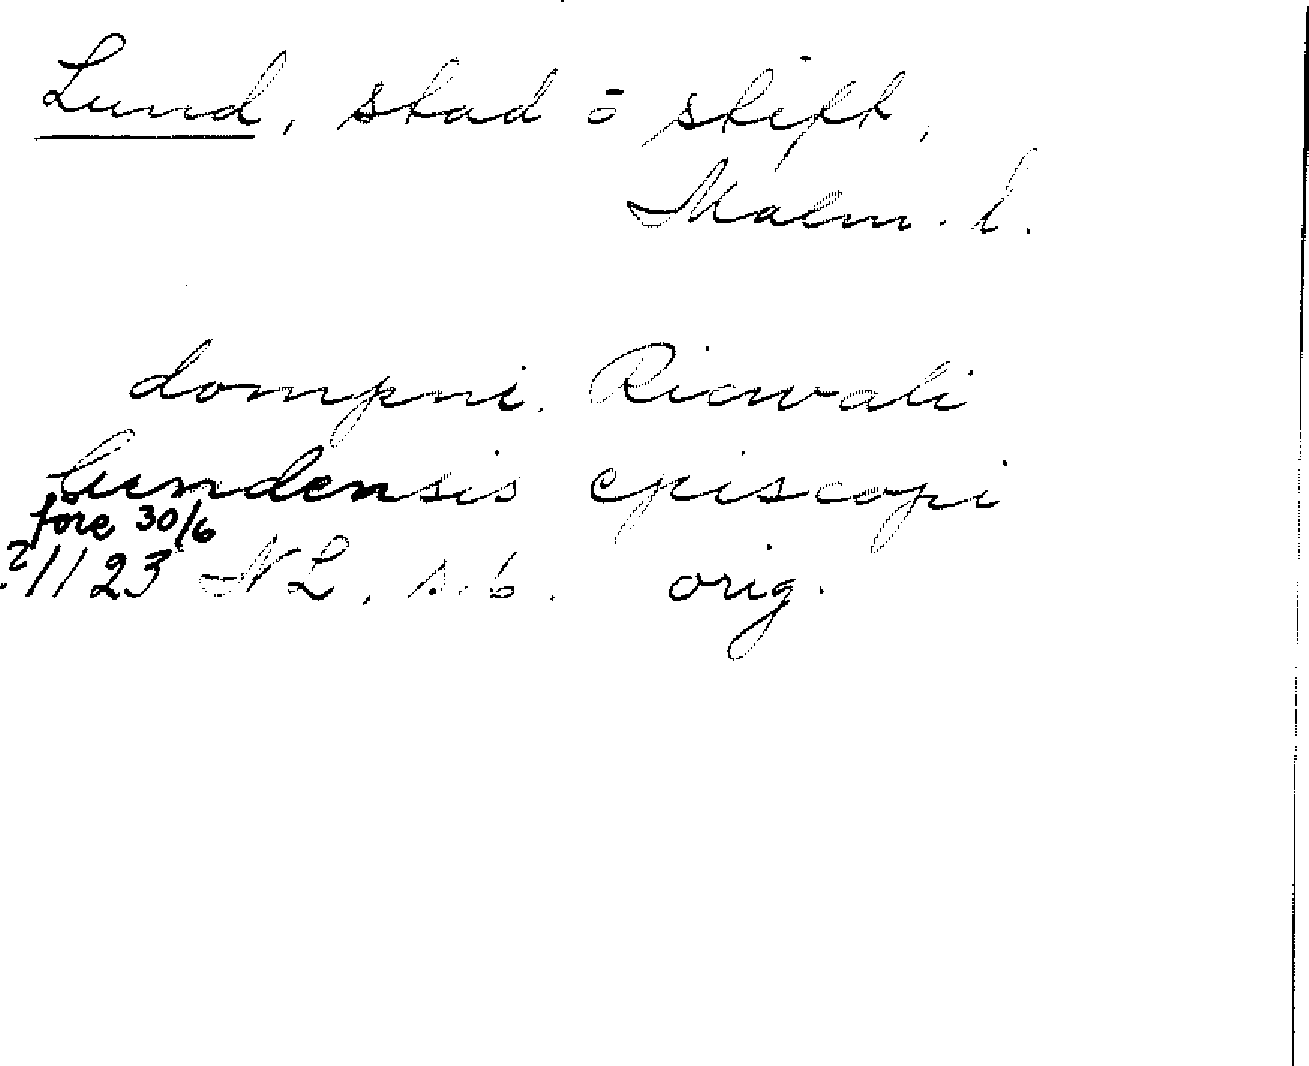 Lund, stad o stift,
Malm. l.
dompni. Ricwali
lundensis episcopi
före 30/6
?/1123 NL, s. 6. orig.